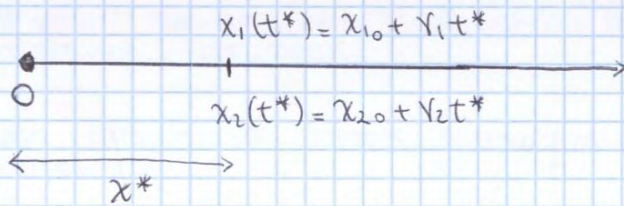 x₁(t*) = x₁₀ + V₁t*
O
x₂(t*) = x₂₀ + V₂t*
x*